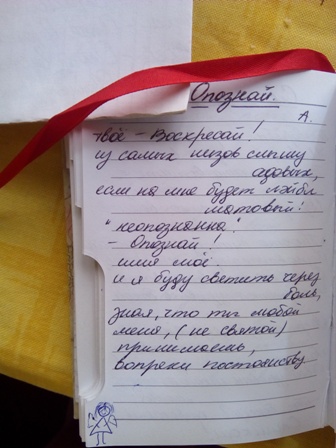 Опознай.
А.
твоё - Воскресай!
из самых низов слышу
адовых,
если на мне будет лэйбл
матовый:
"неопознанна".
- Опознай!
имя моё
и я буду светить через
боль,
зная, что ты любой
меня, (не святой)
принимаешь,
вопреки постоянству